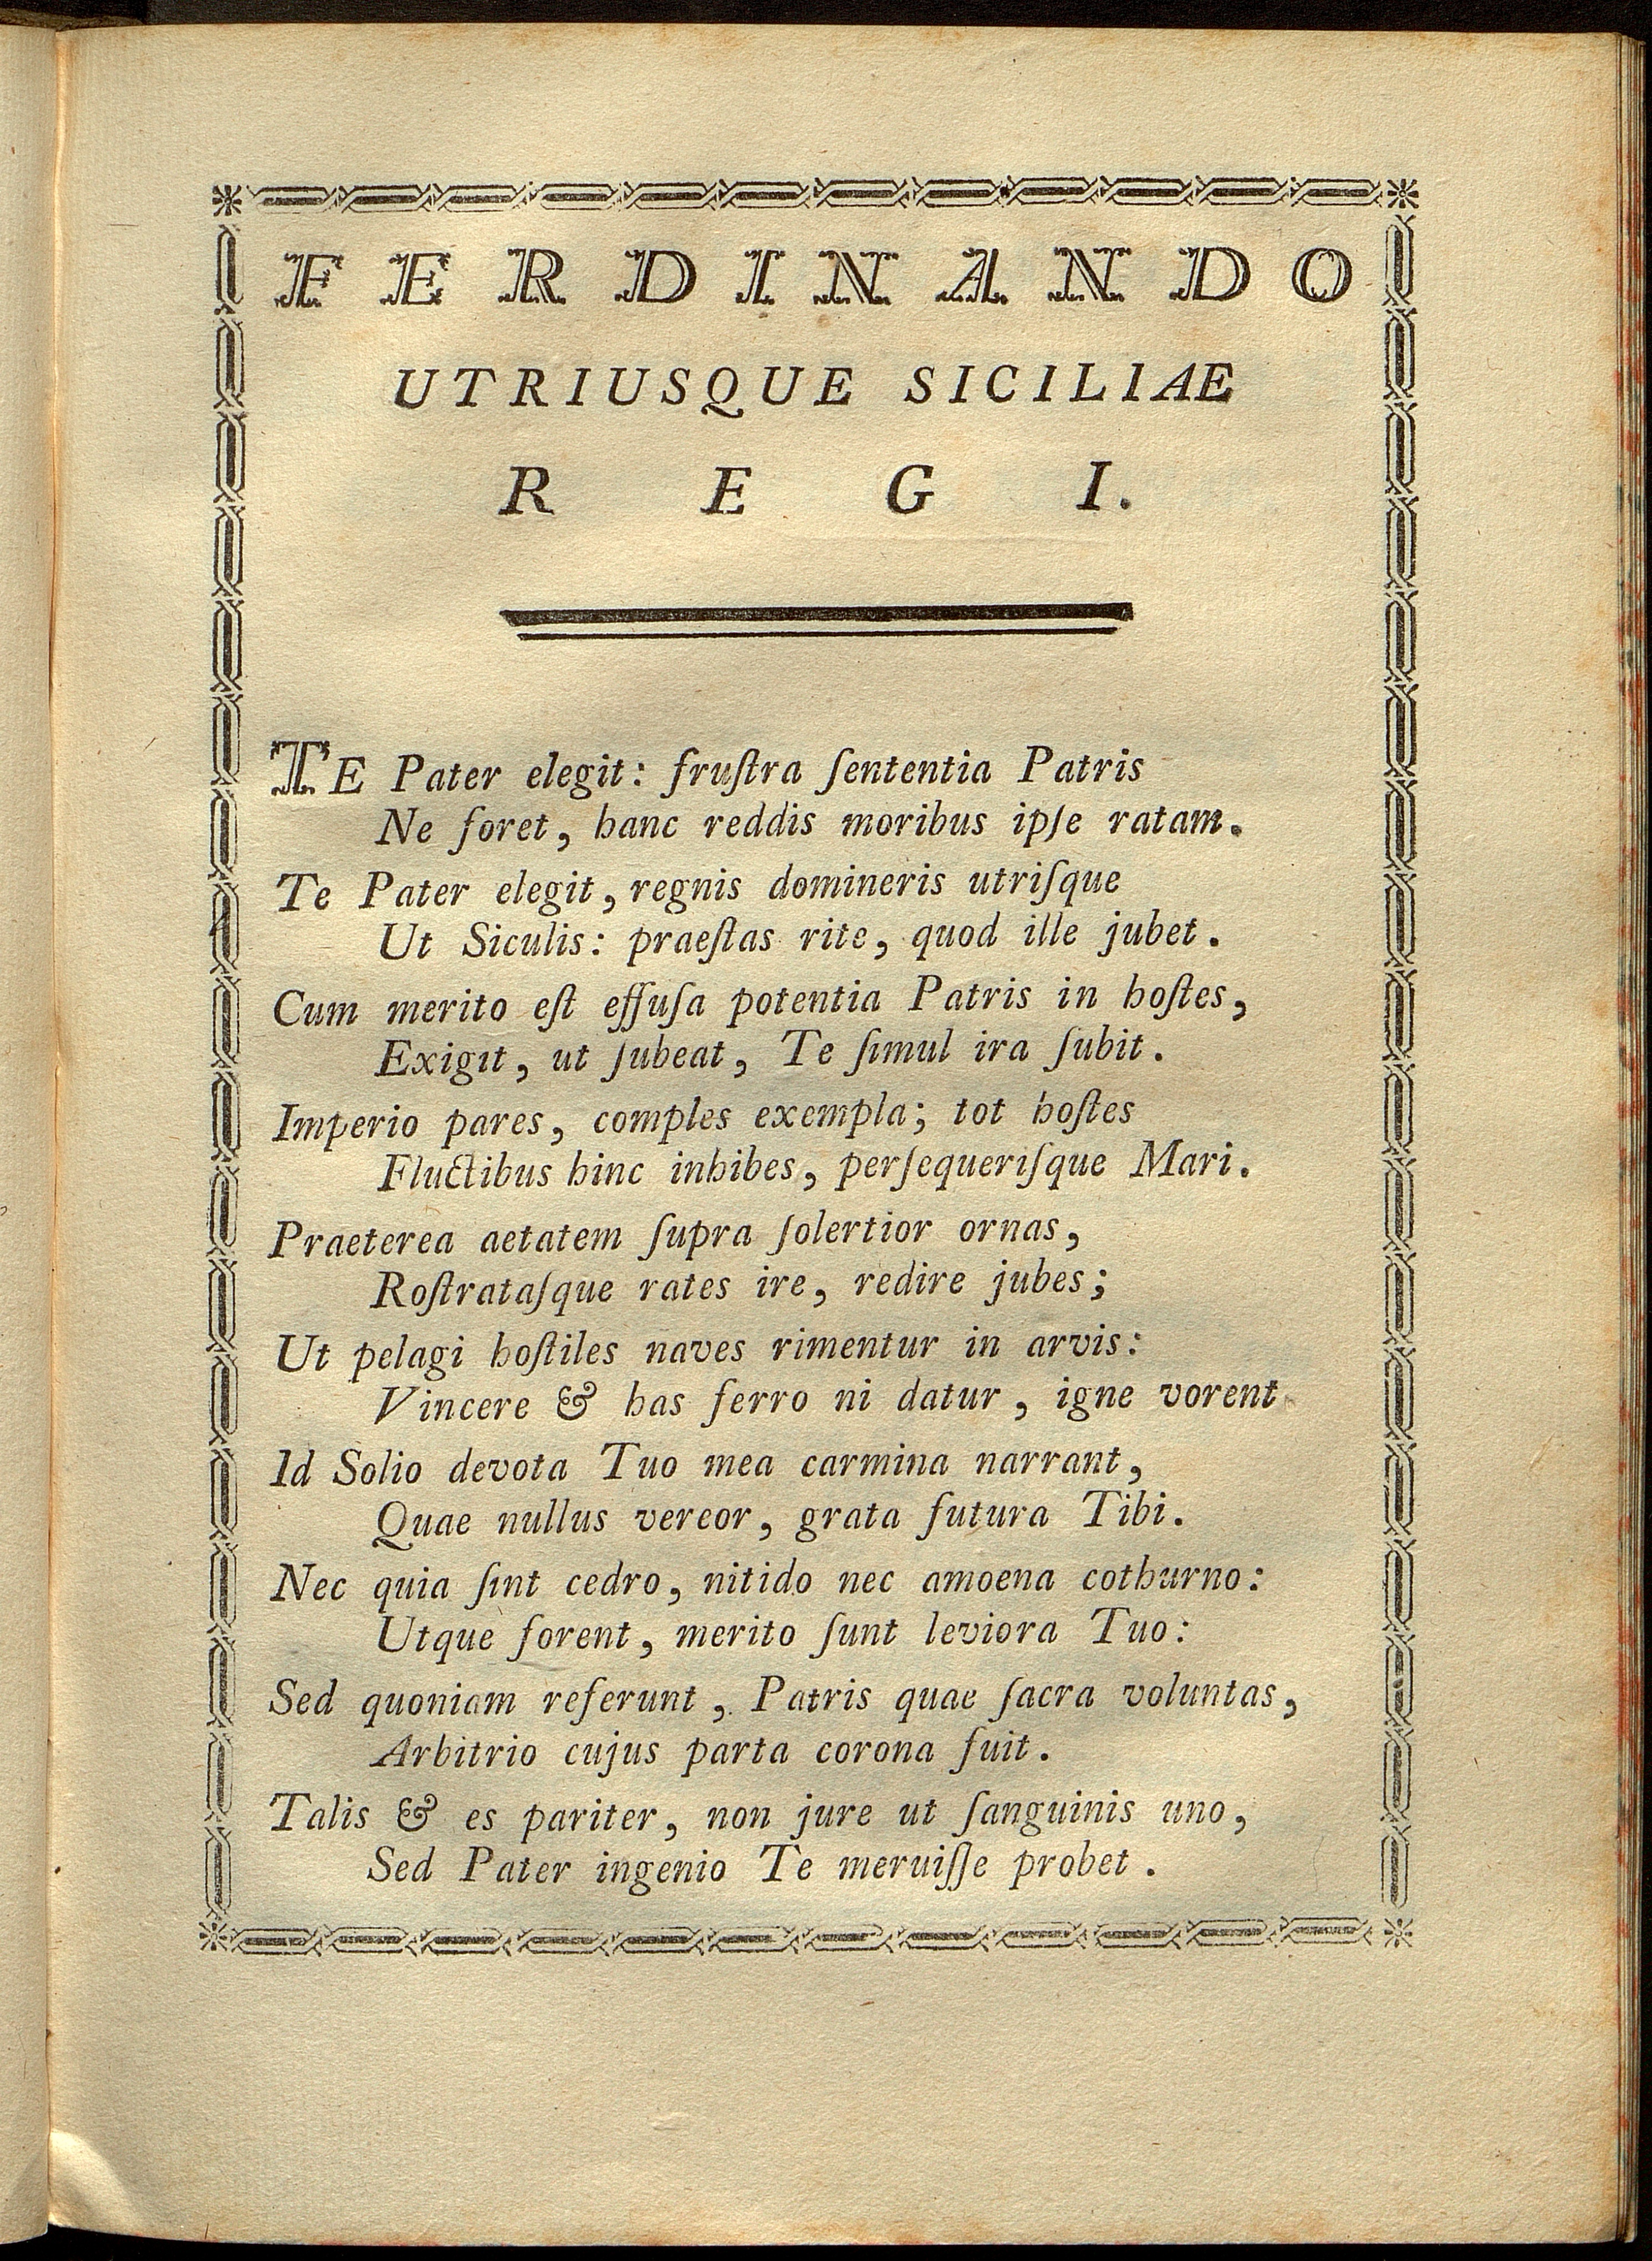 FERDINANDO
UTRIUSQUE SICILIAE
REGI.
TE Pater elegit: fruſtra ſententia Patris
Ne foret, hanc reddis moribus ipſe ratam.
Te Pater elegit, regnis domineris utriſque
Ut Siculis: praeſtas rite, quod ille jubet.
Cum merito eſt effuſa potentia Patris in hoſtes,
Exigit, ut ſubeat, Te ſimul ira ſubit.
Imperio pares, comples exempla; tot hoſtes
Fluctibus hinc inhibes, perſequeriſque Mari.
Praeterea aetatem ſupra ſolertior ornas,
Roſtrataſque rates ire, redire jubes;
Ut pelagi hoſtiles naves rimentur in arvis:
Vincere & has ferro ni datur, igne vorent
Id Solio devota Tuo mea carmina narrant,
Quae nullus vereor, grata futura Tibi.
Nec quia ſint cedro, nitido nec amoena cothurno:
Utque forent, merito ſunt leviora Tuo:
Sed quoniam referunt, Patris quae ſacra voluntas,
Arbitrio cujus parta corona fuit.
Talis & es pariter, non jure ut ſanguinis uno,
Sed Pater ingenio Te meruiſſe probet.